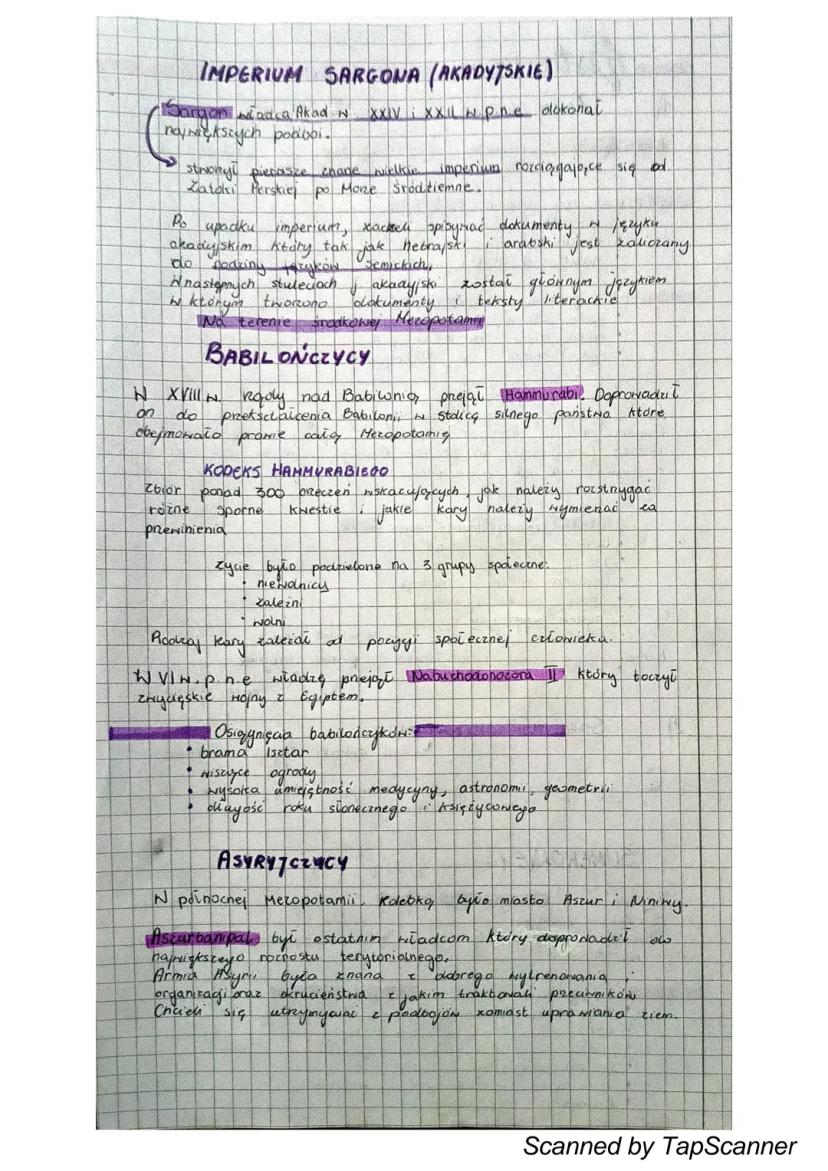 IMPERIUM SARGONA (AKADYJSKIE)
Sargon władca Akad w XXIV i XXII w p.n.e dokonał
największych podboi.
stworzył pierwsze znane wielkie imperium rozciągające się od
Zatoki Perskiej po Morze Śródziemne.
Po upadku imperium, zaczęli spisywać dokumenty w języku
akadyjskim który tak jak hebrajski i arabski jest zaliczany
do rodziny języków semickich,
W następnych stuleciach j akadyjski został głównym językiem
w którym tworzono dokumenty i teksty literackie
Na terenie środkowej Mezopotamii
BABILOŃCZYCY
W XVIII w. rządy nad Babilonią przejął Hammurabi. Doprowadził
on do przekształcenia Babilonii w stolicę silnego państwa które
obejmowało prawie całą Mezopotamię
KODEKS HAMMURABIEGO
Zbiór ponad 300 orzeczeń wskazujących, jak należy rozstrzygać
różne sporne kwestie i jakie kary należy wymierzać za
przewinienia
Życie było podzielone na 3 grupy społeczne:
• niewolnicy
• zależni
• wolni
Rodzaj kary zależał od pozycji społecznej człowieka.
W VI w. p.n.e władzę przejął Nabuchodonozora II który toczył
zwycięskie wojny z Egiptem.
Osiągnięcia babilończyków:
• brama Isztar
• wiszące ogrody
• wysoka umiejętność medycyny, astronomi, geometrii
• długość roku słonecznego i księżycowego
ASYRYJCZYCY
W północnej Mezopotamii. Kolebką było miasto Aszur i Niniwy.
Aszurbanipal był ostatnim władcom który doprowadził do
największego rozrostu terytorialnego.
Armia Asyrii była znana z dobrego wytrenowania
organizacji oraz okrucieństwa z jakim traktowali przeciwników
Chcieli się utrzymywać z podbojów zamiast uprawiania ziem.
Scanned by TapScanner